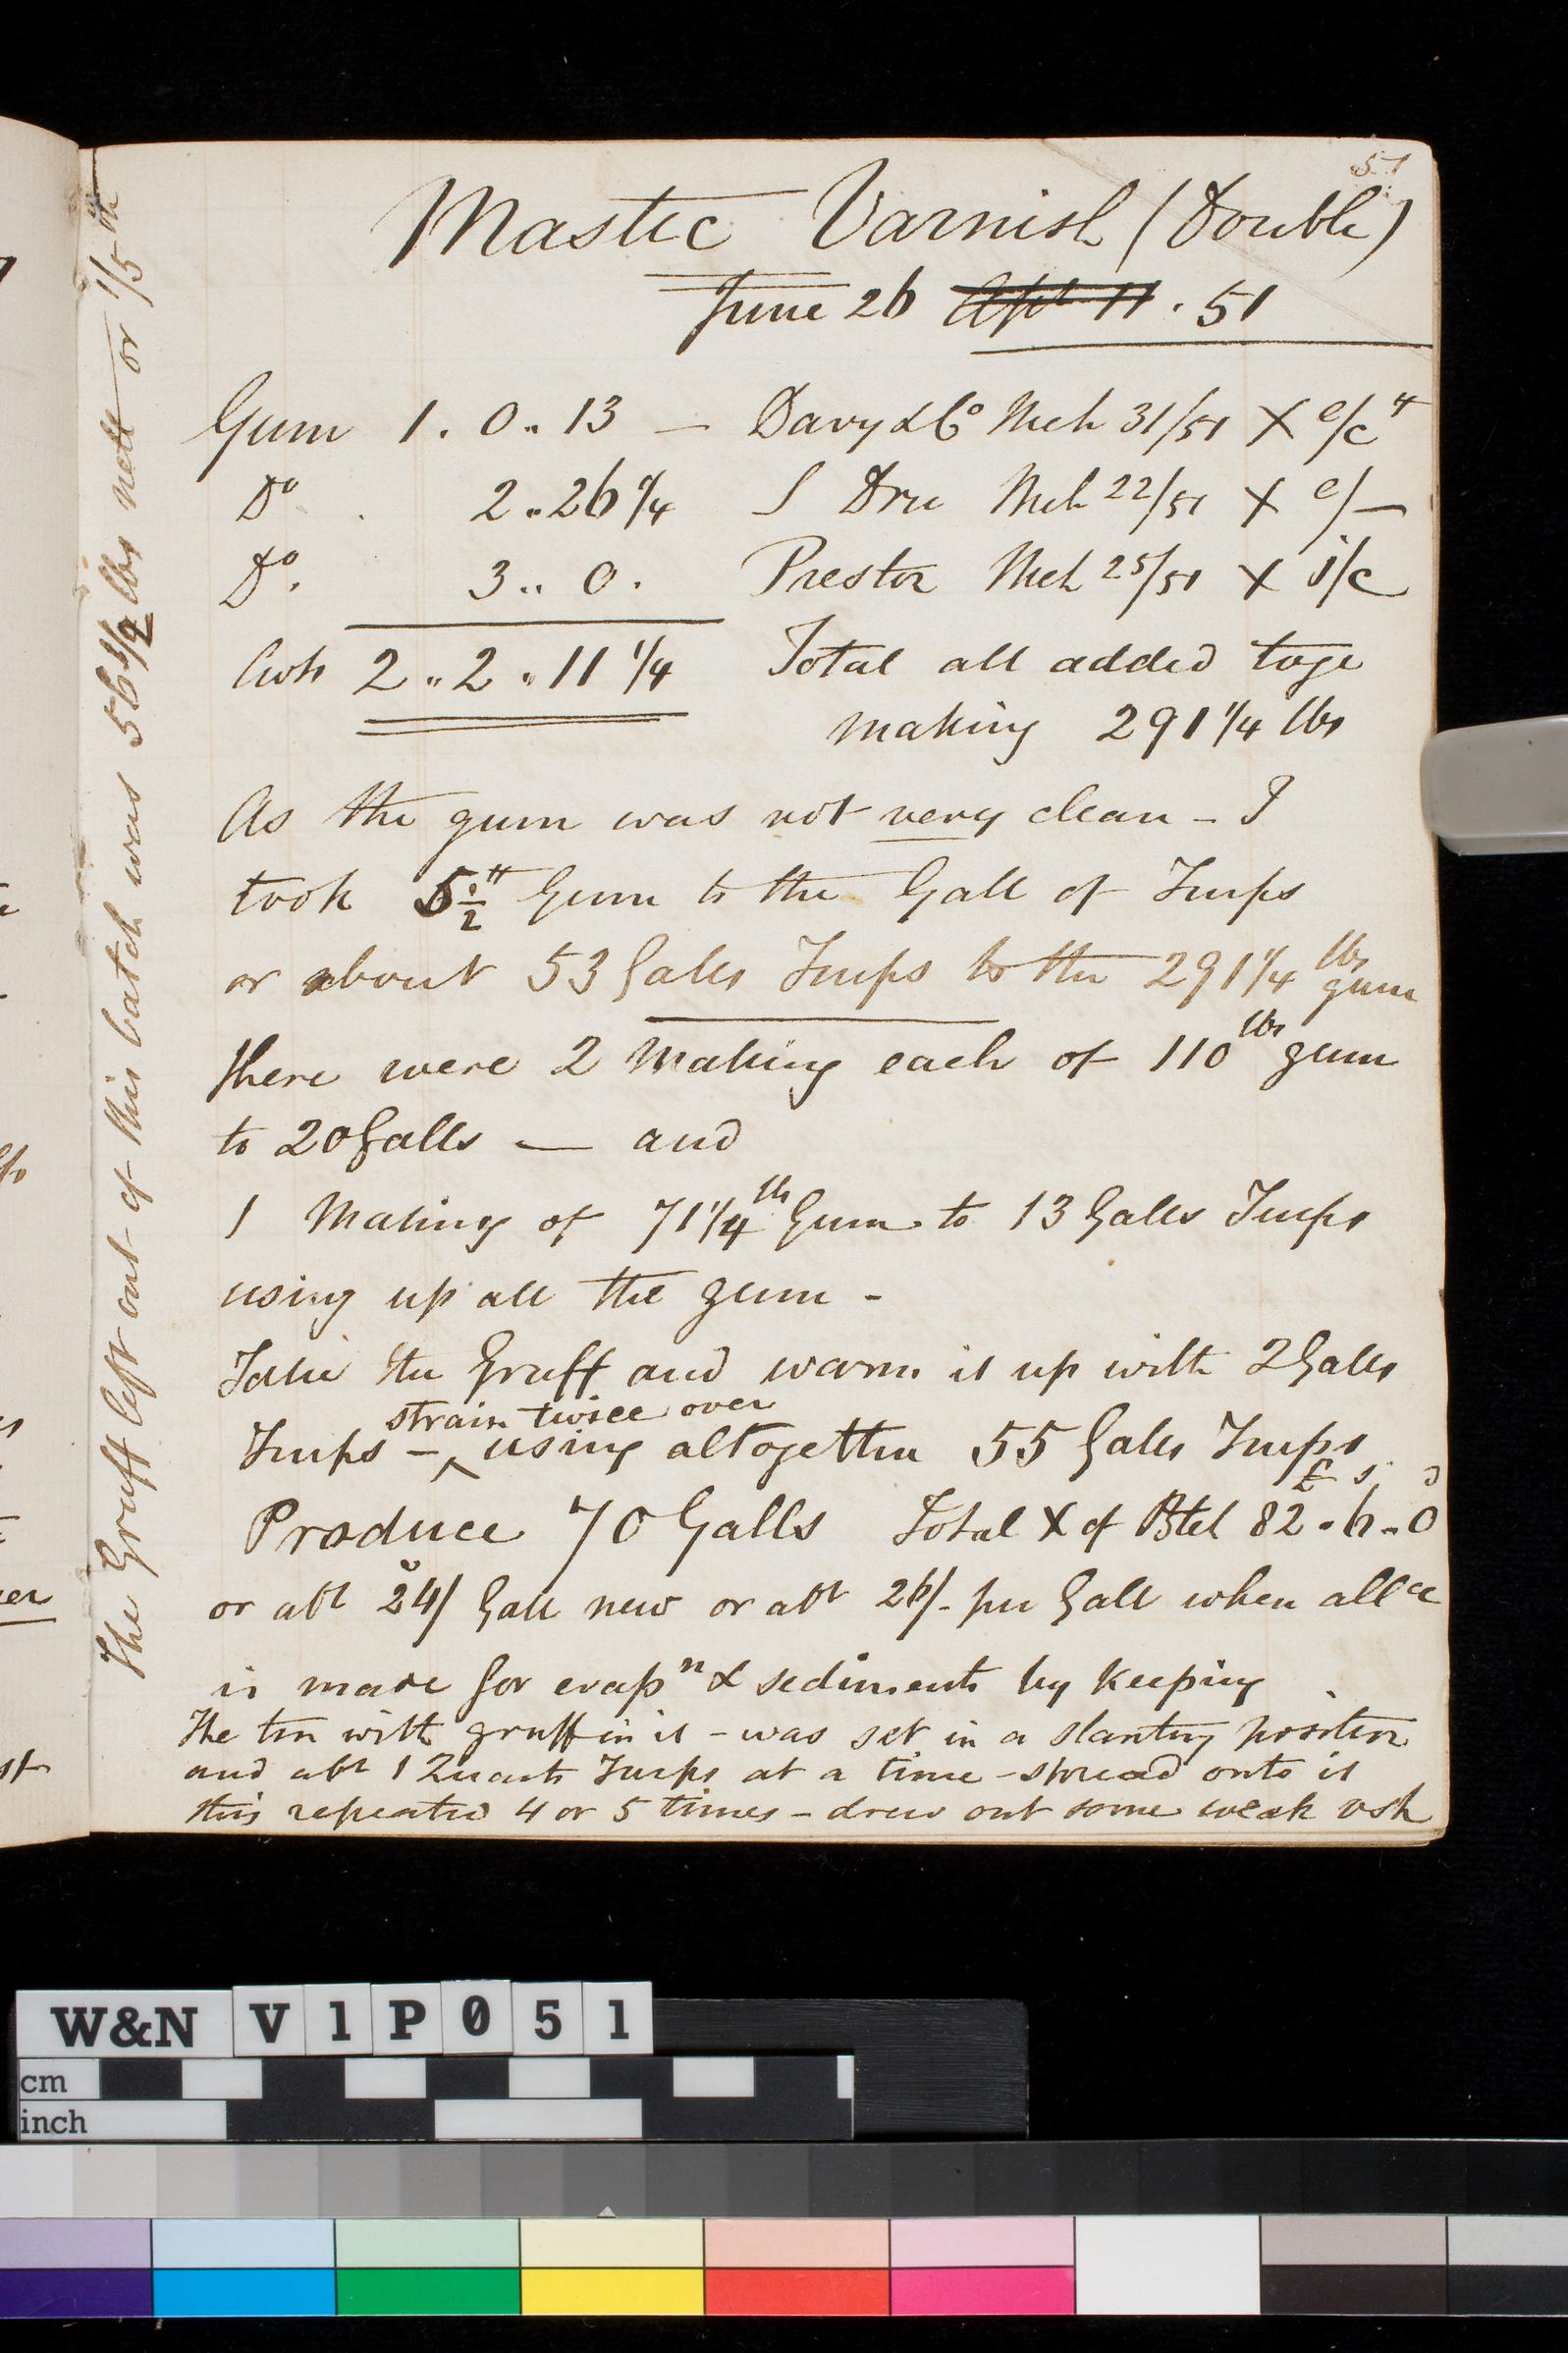 51
Mastic Varnish (Double)
June 26 Apl 11 . 51
Gum 1 . 0 .. 13 — Davy & Co Mch 31/51 X e/c "
Do . 2 .. 26 1/4 S Dru Mch 22/51 X e/—
Do . 3 .. 0 . Prestor Mch 25/51 X i/c
Cwts 2 .. 2 .. 11 1/4 Total all added toge
making 291 1/4 lbs
As the gum was not very clean - I
took 5 1/2 lb Gum to the Gall of Turps
or about 53 Galls Turps to the 291 1/4 lbs gum
there were 2 Making each of 110 lbs gum
to 20 Galls — and
1 Making of 71 1/4 lb Gum to 13 Galls Turps
using up all the gum -
Take the Gruff and warm it up with 2 Galls
strain twice over
Turps - ^ using altogether 55 Galls Turps
£ s. d
Produce 70 Galls Total X of Btch 82 . 6 .. 0
or abt 24/ Gall new or abt 26/- per Gall when allce
is made for evapn & sediments by keeping
The tin with gruff in it - was set in a slanting position
and abt 1 Quart Turps at a time - spread onto it
this repeated 4 or 5 times - drew out some weak vsh
The Gruff left out of this batch was 56 1/2 lbs nett or 1/5th
W&N V1P051
cm
inch